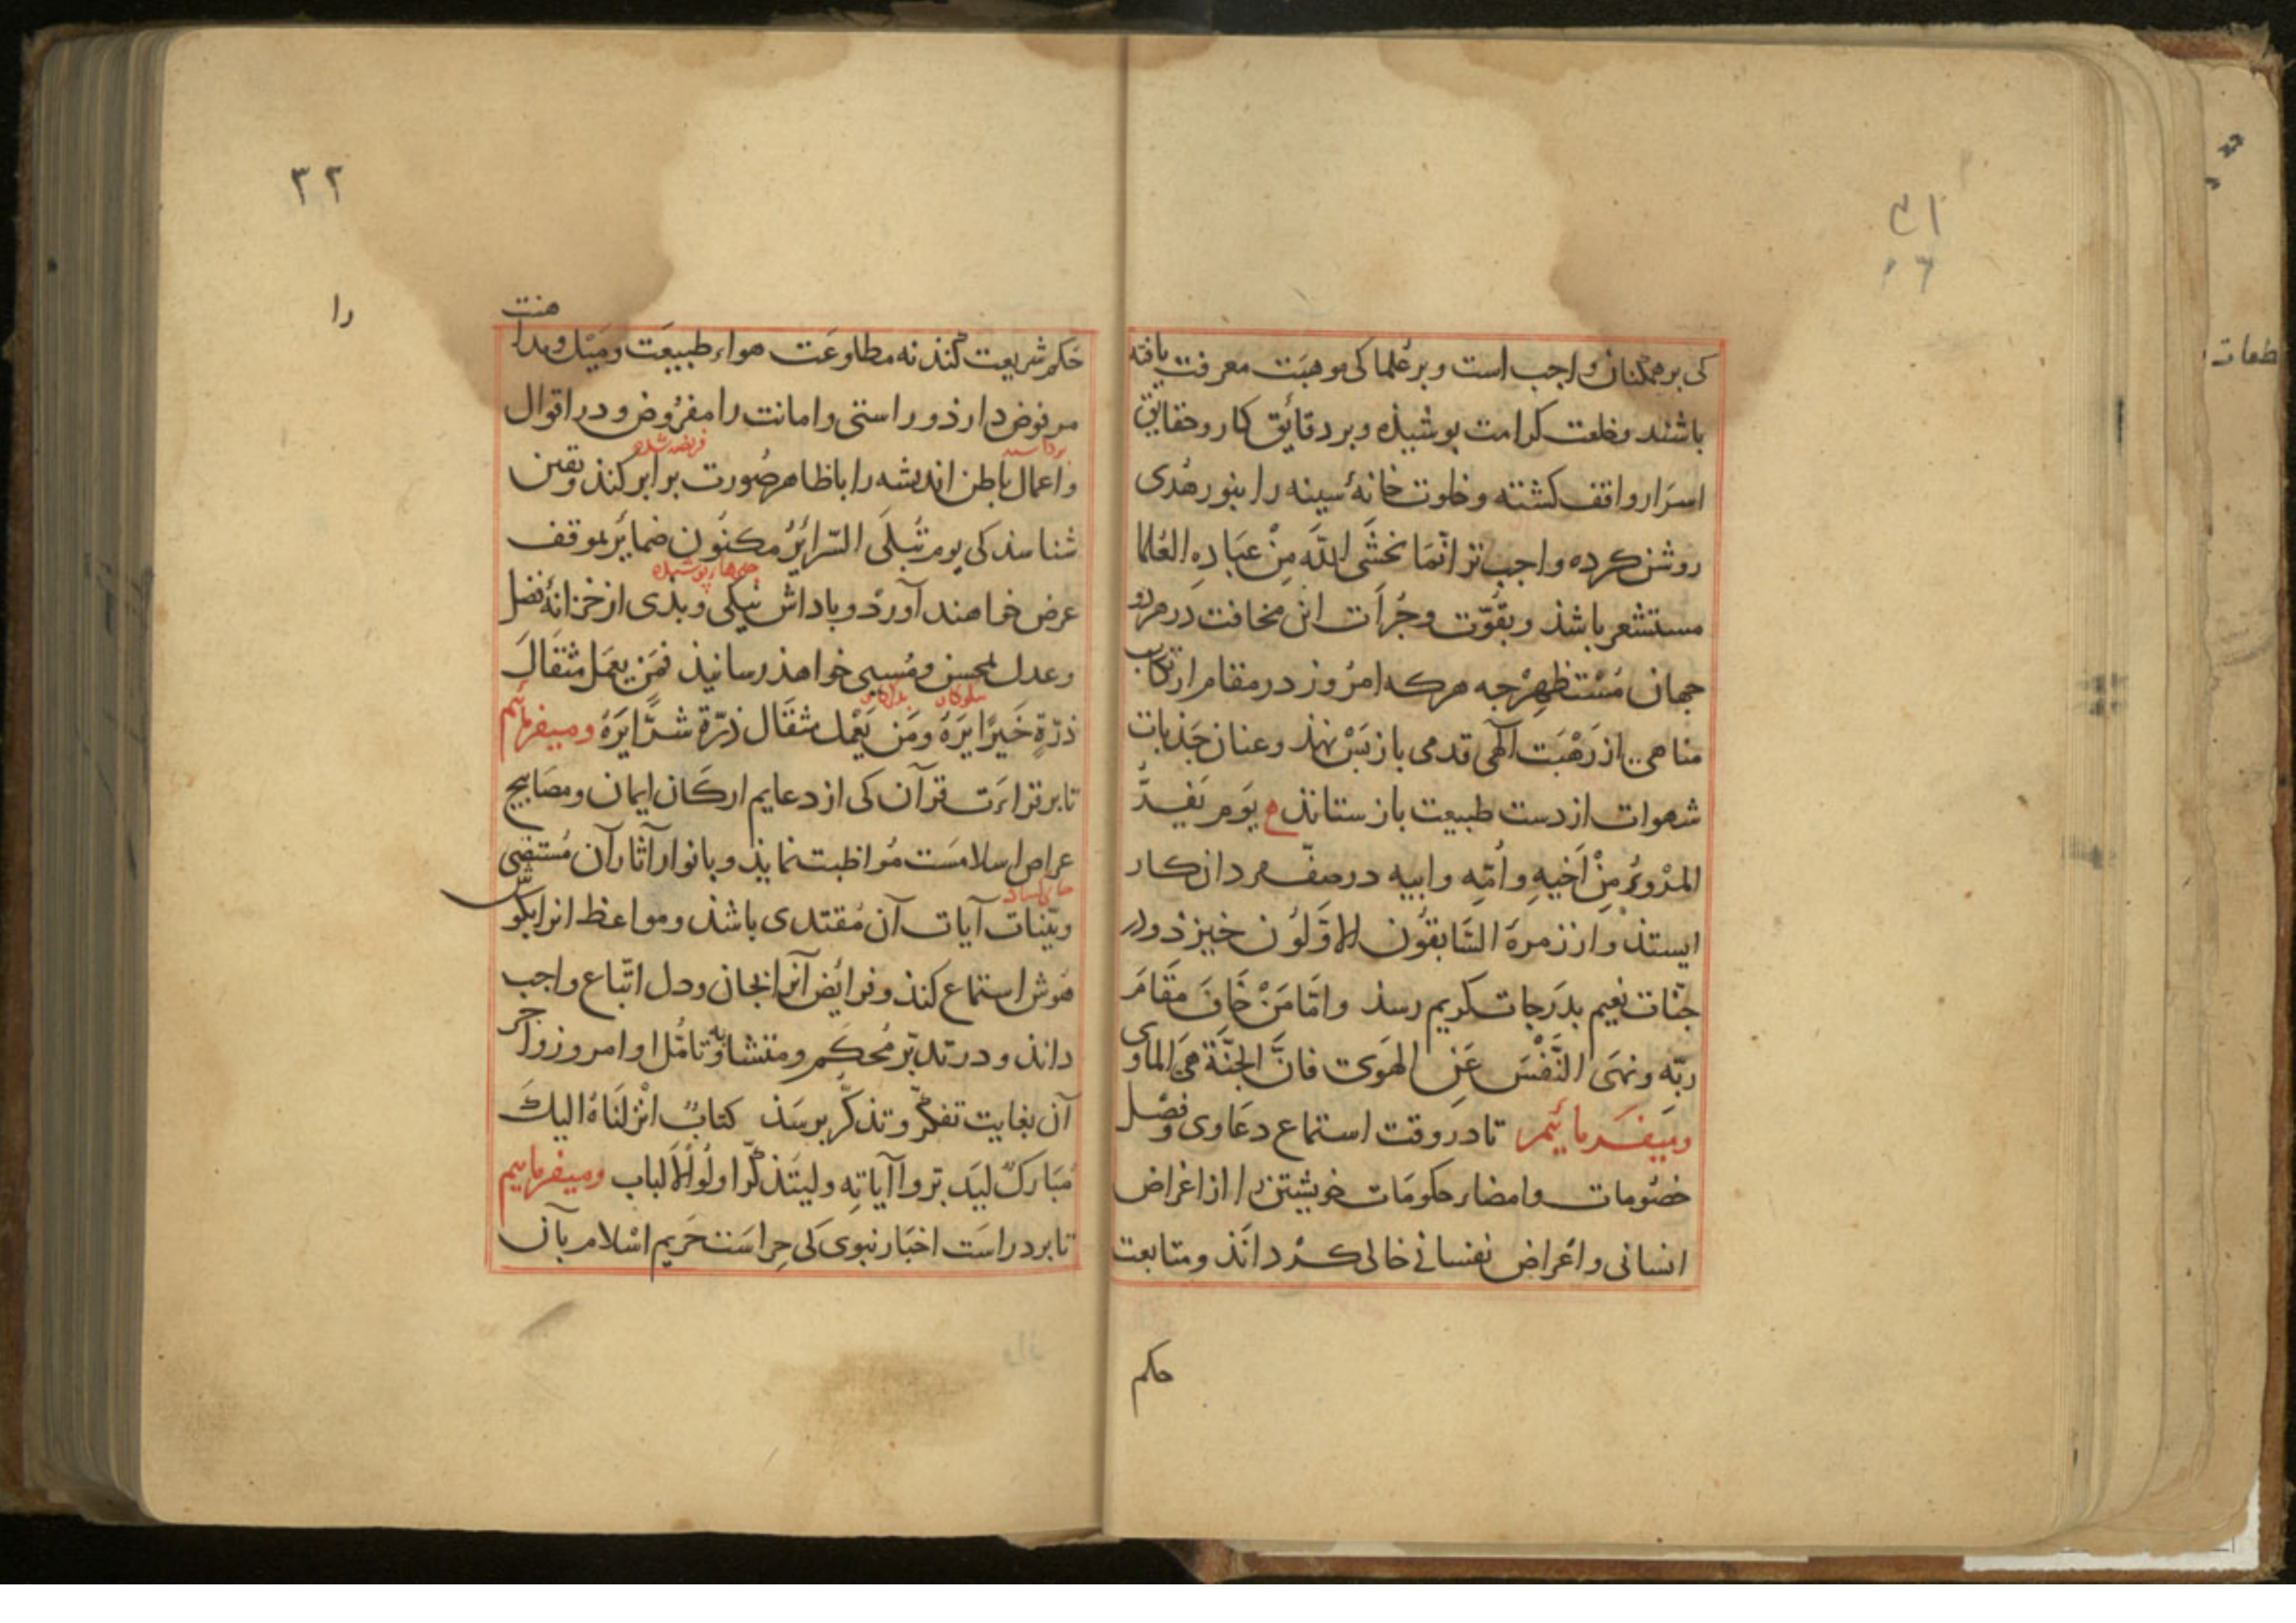 ۳۱
کی برهمکنان واجب است و بر علما کی موهبَت معرفت یافته
باشند وخلعت کرامت بوشیذه وبر دقائق کار وحقایق
اسرَار واقف کشته وخلوت خانهٔ سینه را بنور هُدی
روشن کرده واجب تر انّمَا یخشَی اللّهَ مِنْ عبَادِهِ العُلما
مستشعر باشذ وبقُوّت وجُرأت این مخافت در هر دو
جهان مُسْتظهِرْ جه هرکه امرُوز در مقام ارتکاب
مناهی از رَهْبَت آلهی قدمی باز بَسْ نهذ وعنان جَذبات
شهوات از دست طبیعت باز ستانذ یوَم یَفِرُّ
المرْءُ مِنْ اَخیهِ واُمّهِ وابیه در صفّ مردان کار
ایستذ واز زمرهٔ السَّابقُون الاوّلوُن خیزذ ودر
جنّات نعیم بدرَجات کریم رسذ وامّا مَنْ خَافَ مقَامَ
ربّه ونهَی النَّفْسَ عَنِ الهَوی فانَّ الجنَّة هیَ الماوی
ومیفَرمائیم تا در وقت استماع دعَاوی وفصْل
خصُومات وامضاء حکومَات خویشتن را از اغراض
انسانی واعْراض نفسانی خالی کرْدانَذ ومتابعت
حکم
۳۲
حَکم شریعت کُنذ نه مطاوعَت هواءِ طبیعَت ومَیْل ومداهنت
مرفوض دارذ وراستی وامانت را مفرُوض ودر اقوال
فریضه شده
واعمال باطن اندیشه را با ظاهر صُورت برابر کنذ ویقین
شناسذ کی یوم تُبلَی السّرائرُ مکنُون ضمایر بموقف
عرض خواهند آورْد وباداش نیکی وبذی از خزانهٔ فضل
وعدل بمحسن ومُسیی خواهذ رسانیذ فمَن یعمَل مثقَالَ
ذرّةٍ خَیرًا یَرَهُ ومَن یَعْمل مثقَال ذرّة شرًّا یَرَهُ ومیفرمائیم
تا بر قراءَت قرآن کی از دعایم ارکَان ایمان ومصَابیح
عراص اسلامسَت مُواظبت نمایذ وبانوار آثار آن مُستضی
وبیّنات آیات آن مُقتدی باشذ ومواعظ انرا بکوش
هُوش استماع کنذ وفرائض آنرا بجان ودل اتّباع واجب
دانذ ودر تدبّر مُحکم ومتشابه وتامُّل اوامر وزواجر
آن بغایت تفکّر وتذکّر برسَذ کتابٌ انْزلنَاهُ الیكَ
مُبَارکٌ لیَدّبّروا آیاتِه ولیتَذکّر اولُوا الاَلباب ومیفرماییم
تا بر دراسَت اخبَار نبوی کی حِراسَت حَریم اسْلام بآن
را